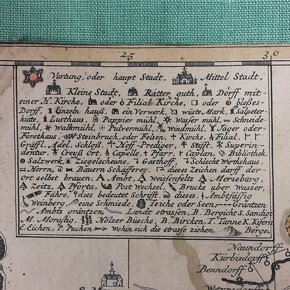 25 30
Vestung, oder haupt Stadt, Mittel Stadt,
Kleine Stadt, Ritter guth, Dorff mit
einer K. Kirche, oder Filial Kirche, oder bloßes
Dorff. Einzeln hauß, ein Vorwerk. wüste Mark, Salpeter
hütte, Lusthaus Pappier mühl, Waßer mühl Schneide
mühl, Walkmühl, Pulvermühl, Windmühl, Jäger oder
Forsthaus, Steinbruch, oder Felsen, Kirche, Filial
Gräffl. Adel. Schloß Hoff-Prediger, Stifft, Superin-
dentur, Creuß ort, Capelle, Pfarr, Caplan, Bibliothek
Saltzwerk, Ziegelscheune, Gasthoff, Schlecht Wirthshaus
Herrn, Bauern Schäfferey. dieses Zeichen darff der-
ort selbst brauen, Ambt, Weisenfels Merseburg,
Zeitz, Pforta, Post Wechsel, Brucke über Wasser,
Fähre, dies bedeutet Schrifft dieses Ambtsässig
Weinberg, eine Schmiede, Teiche oder Seen, Gräntzen
Ambts gräntzen Land straßen, B. Bergicht S. Sandigt
M. Moraßtig. Höltzer Büsche, B. Bircken, T. Tanne K. Kifern
E. Eichen, P. Puchen Wohin sich die straße ziehen.
Naundorff
Kürbisdorff
Benndorff